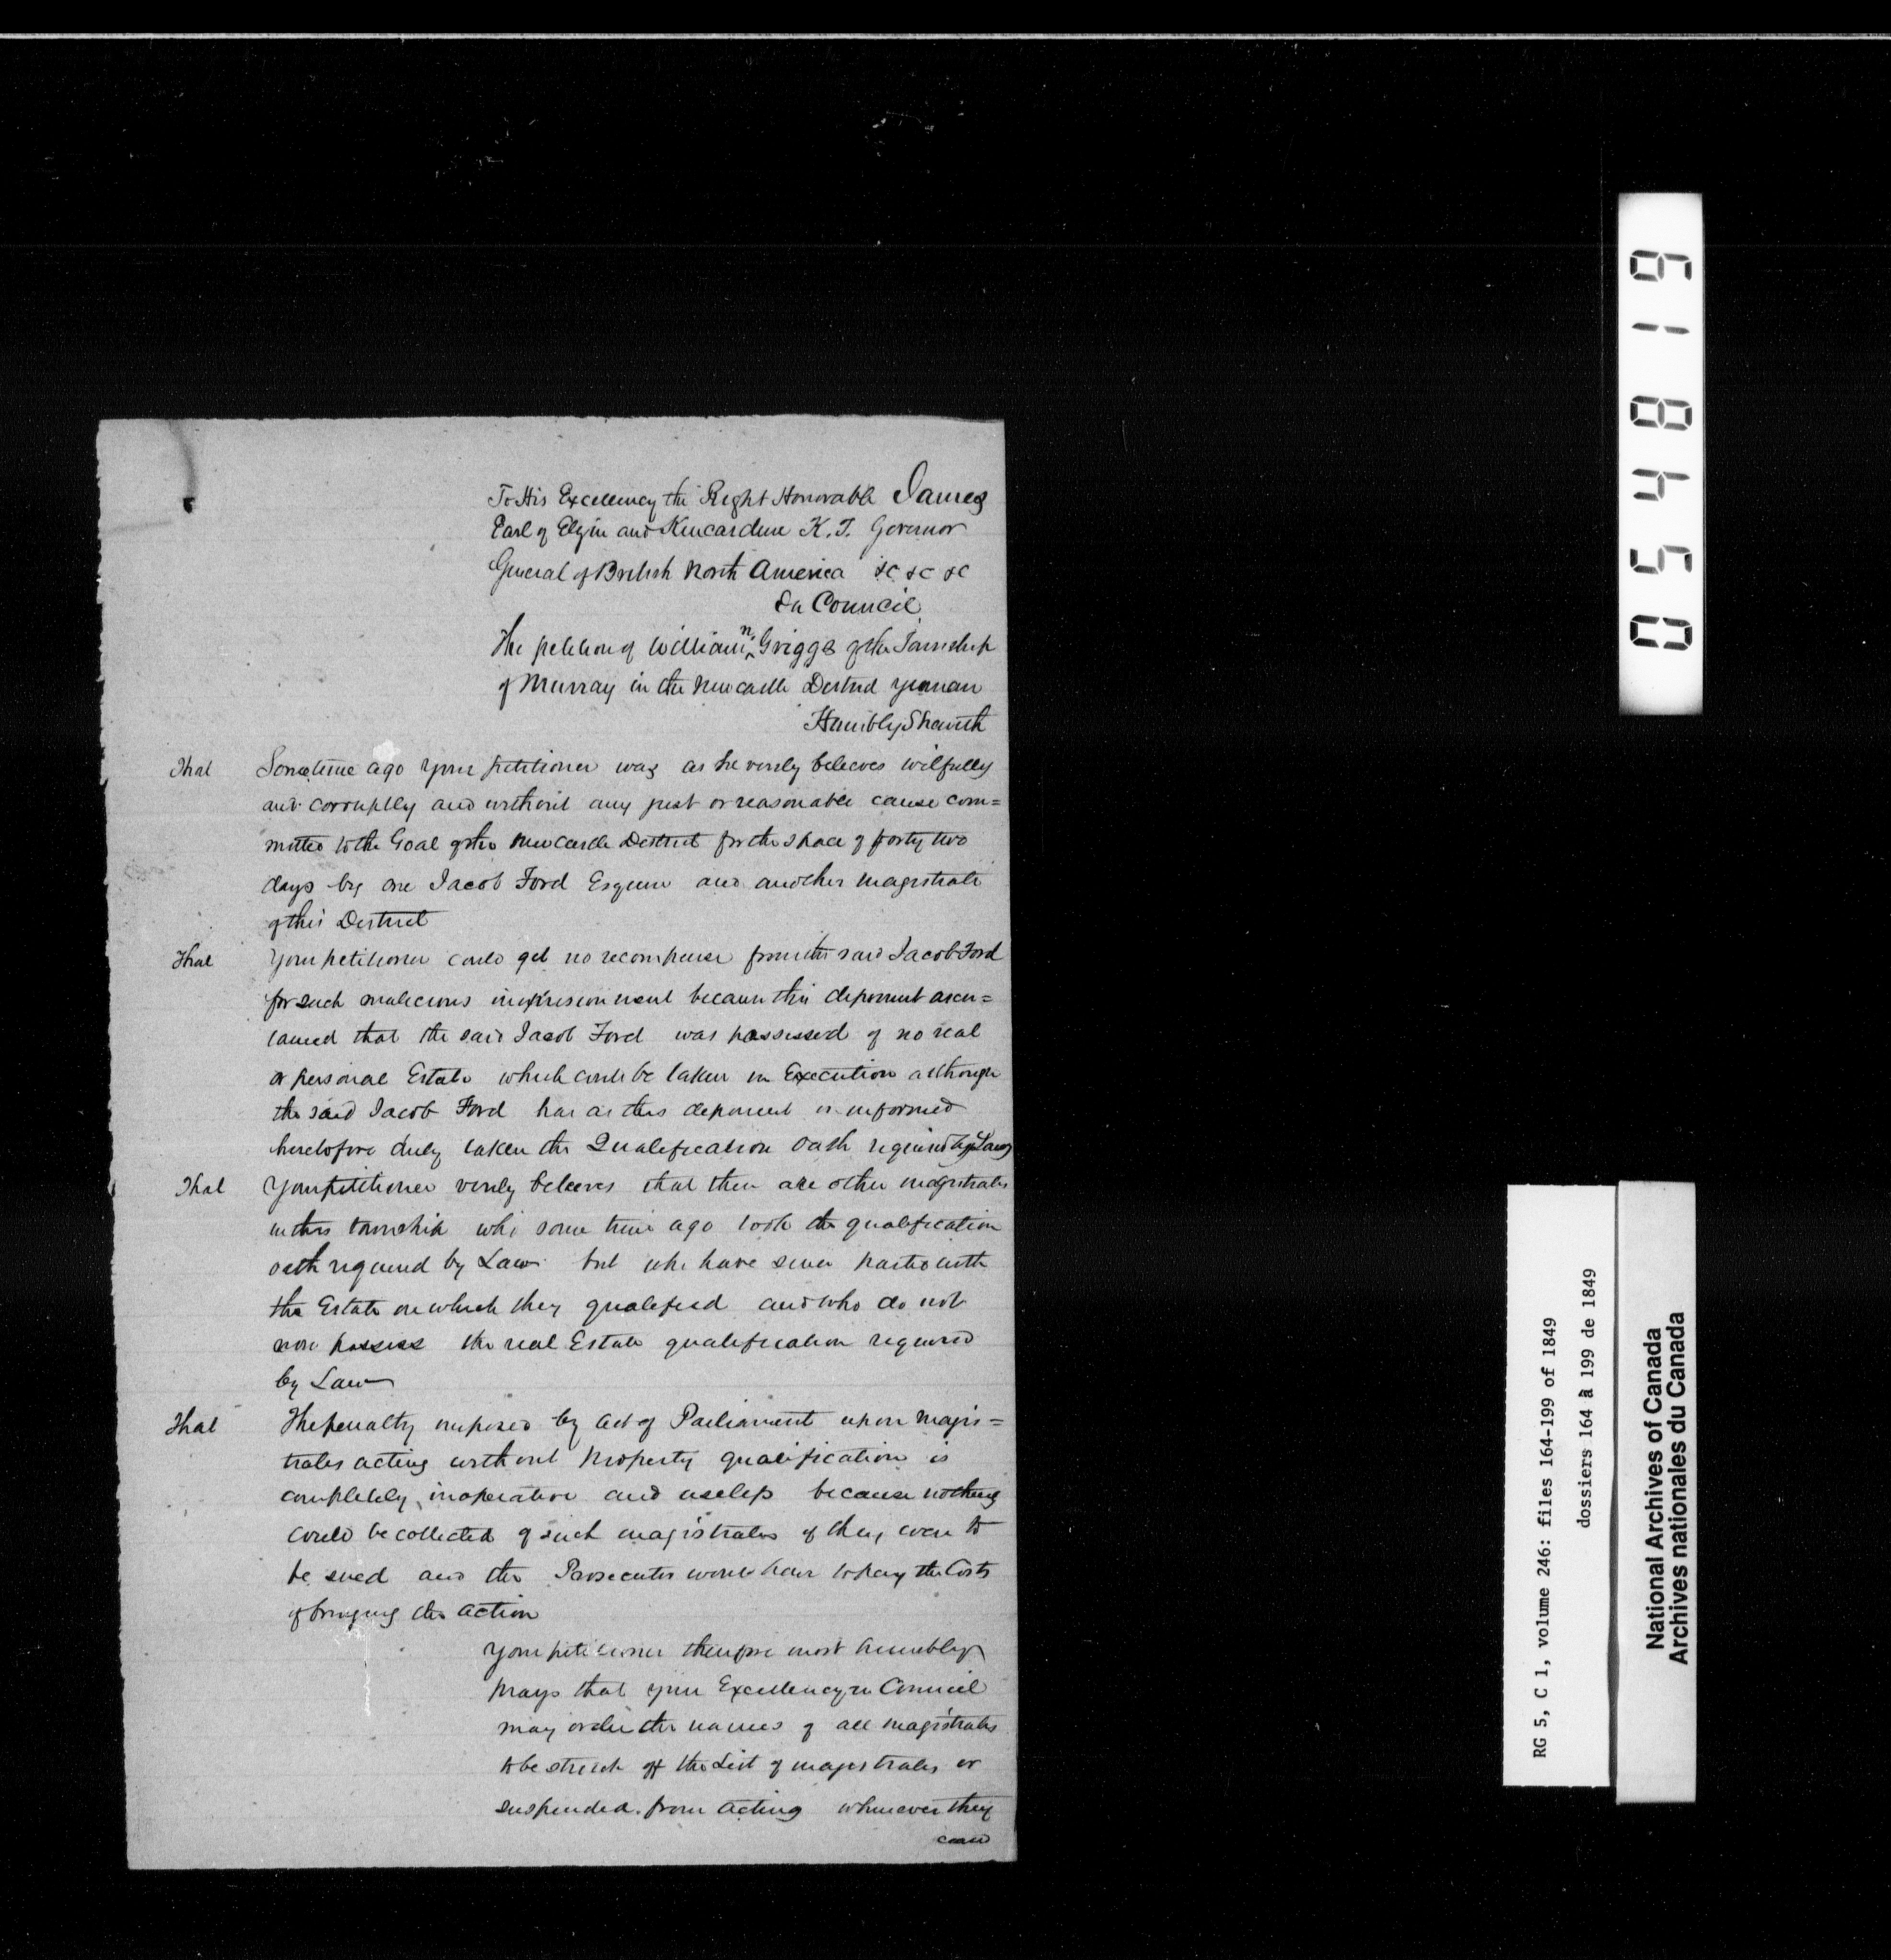 To His Excellency the Right Honorable James
Earl of Elgin and Kincardine K. T. Governor
General of British North America &c &c &c
In Council
The petition of William n. Griggs of the Township
of Murray in the Newcastle District yeoman
Humbly Sheweth
That Sometime ago your petitioner was as he verily believes wilfully
and corruptly and without any just or reasonable cause com=
mitted to the Goal of the Newcastle District for the space of forty two
days by one Jacob Ford Esquire and another magistrate
of this District
That Your petitioner could get no recompense from the said Jacob Ford
for such malicious imprisionment because this deponent ascer=
tained that the said Jacob Ford was possessed of no real
or personal Estate which could be taken in Execution although
the said Jacob Ford has as this deponent is informed
heretofore duly taken the Qualification Oath required by Law
That Your petitioner verily believes that there are other magistrates
in this township who some time ago took the qualification
oath required by Law but who have since parted with
the Estate on which they qualified and who do not
now possess the real Estate qualification required
by Law
That The penalty imposed by act of Parliament upon Magis=
trates acting without Property qualification is
completely inoperative and useless because nothing
could be collected of such magistrates if they were to
be sued and the Prosecutor would have to pay the Costs
of bringing the action
Your petitioner therefore most humbly
prays that your Excellency in Council
may order the names of all magistrates
to be struck off the List of magistrates or
suspended from acting whenever they
0 5 4 8 1 9
RG 5, C 1, volume 246: files 164-199 of 1849
dossiers 164 à 199 de 1849
National Archives of Canada
Archives nationales du Canada